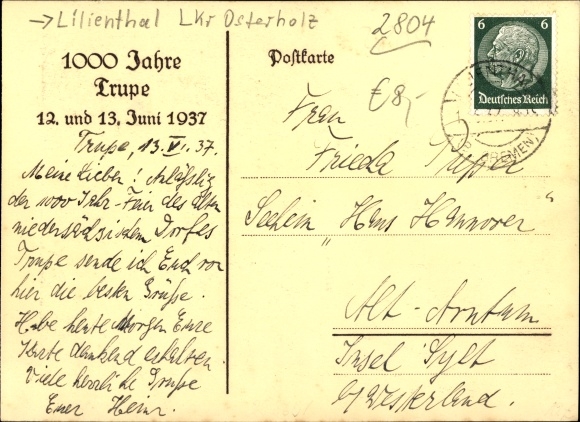 → Lilienthal LKr Osterholz
2804
€ 8,-
1000 Jahre
Trupe
12. und 13. Juni 1937
Trupe, 13.VI.37.
Meine Lieben! Anläßlig
der 1000 Jahr-Feier des alten
niedersächsischen Dorfes
Trupe sende ich Euch von
hier die besten Grüße.
Habe heute Morgen Eure
Karte dankend erhalten.
Viele herzliche Grüße
Euer Heinr.
Postkarte
6 6
Deutsches Reich
BREMEN)
Frau
Frieda
"Hans Hannover"
Insel Sylt
b/ Westerland.